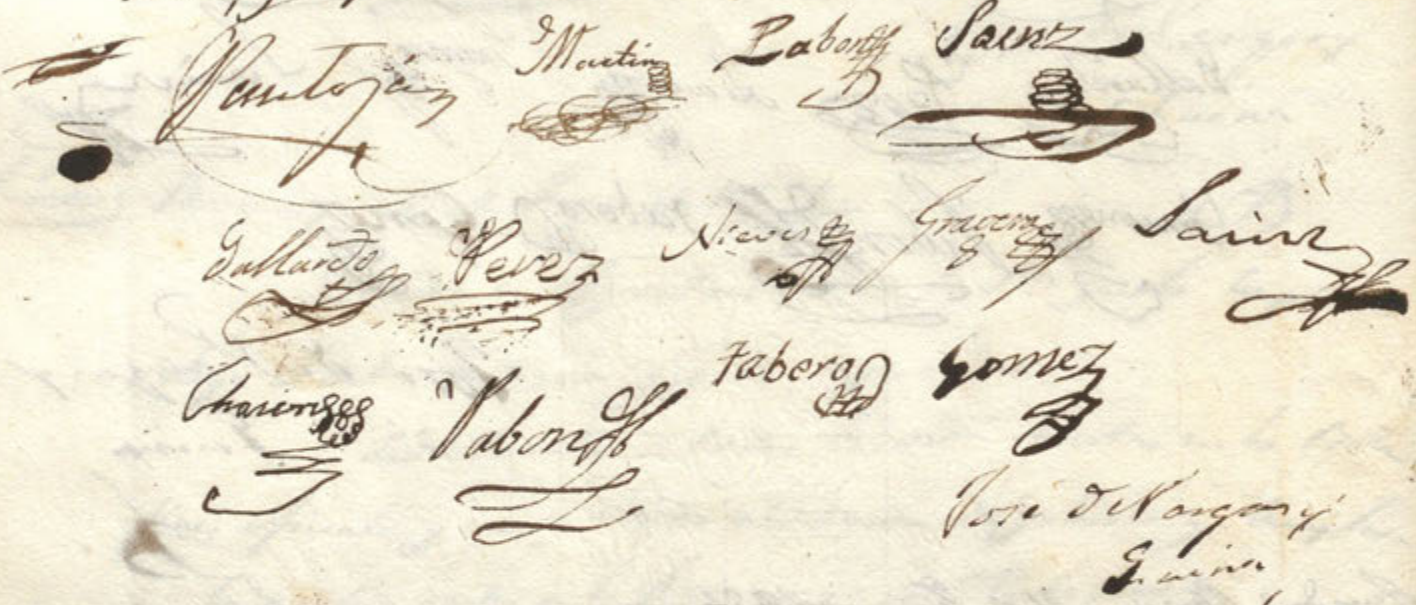 Pantoja Martin Pabon Saenz
Gallardo Perez Nieves Gracera Sainz
Chacon Pabon Tabero Gomez
Jose